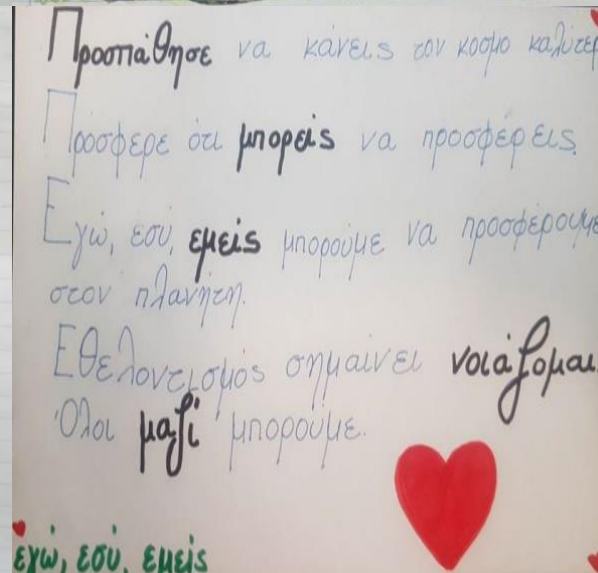 Προσπάθησε να κάνεις τον κοσμο καλύτερ
Πρόσφερε ότι μπορείς να προσφέρεις.
Εγώ, εσύ, εμείς μπορούμε να προσφέρουμε
στον πλανήτη.
Εθελοντισμός σημαίνει νοιάζομαι.
Όλοι μαζί μπορούμε.
εγώ, εσύ, εμείς